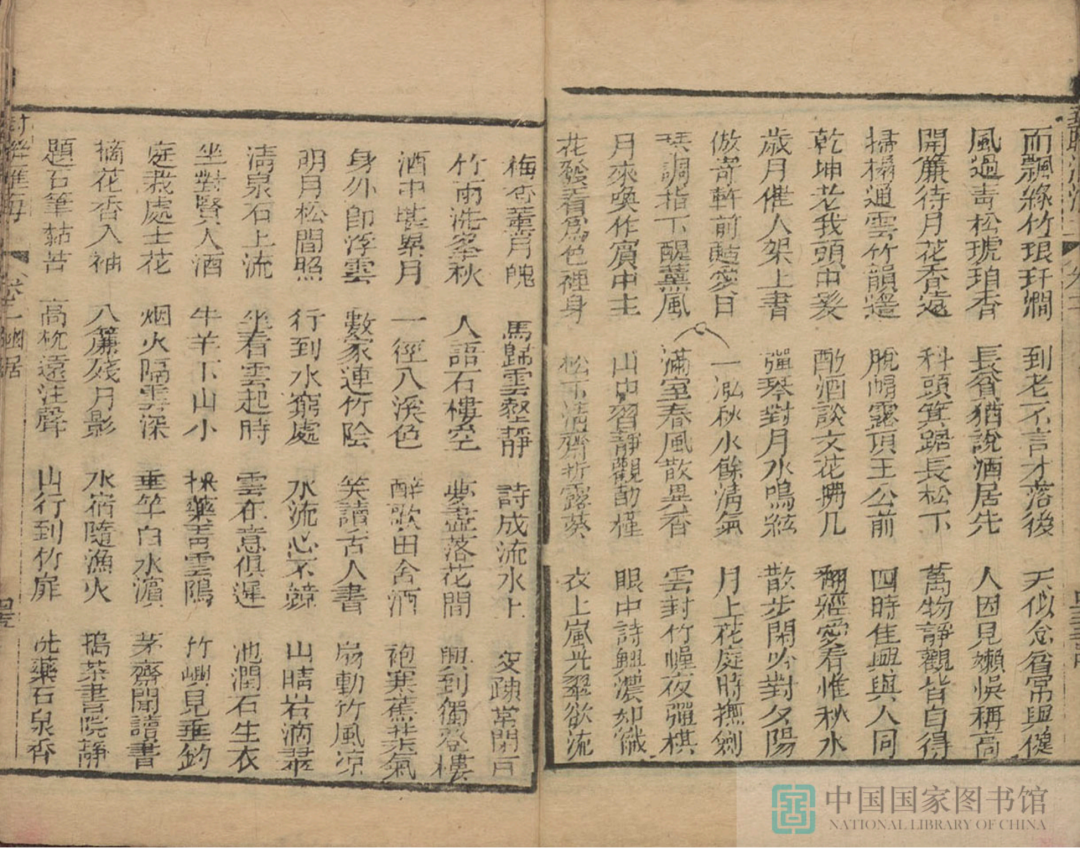 而飄綠竹琅玕澗　到老不言才落後　天似念貧常與健
風過靑松琥珀香　長貧猶說酒居先　人因見嬾悞稱高
開簾待月花香遠　科頭箕踞長松下　萬物靜觀皆自得
掃榻通雲竹韻遙　脫帽露頂王公前　四時佳興與人同
乾坤老我頭中髮　酌酒談文花拂几　翻經愛看惟秋水
歲月催人架上書　彈琴對月水鳴絃　散步閑吟對夕陽
倣寄軒前 愛日　一泓秋水餘淸氣　月上花庭時撫劍
琴調指下醒薰風　滿室春風散異香　雲對竹幢夜彈棋
月來喚作賓中主　山中習靜觀 槿　眼中詩興濃如
花發看爲色裡身　松下淸齋折露葵　衣上嵐光翠欲流
梅香 月魄　馬歸雲壑靜　詩成流水上　交疎常閉戸
竹雨洗 秋　人語石樓空　夢 落花間　興到獨登樓
酒中堪累月　一徑入溪色　醉歌田舍酒　袍 蕉 氣
身外卽浮雲　數家連竹陰　笑讀古人書　扇動竹風凉
明月松間照　行到水窮處　水流心不競　山晴岩滴翠
淸泉石上流　坐看雲起時　雲在意俱遲　池潤石生衣
坐對賢人酒　牛羊下山小　採藥靑雲隝　竹嶼見垂釣
庭栽處士花　烟火隔雲深　垂竿白水濵　茅齋聞讀書
摘花香入袖　入簾殘月影　水宿隨漁火　塢茶書院靜
題石筆黏苔　高枕遠汪聲　山行到竹扉　洗藥石泉香
卷一 幽居
四十五
中国国家图书馆
NATIONAL LIBRARY OF CHINA